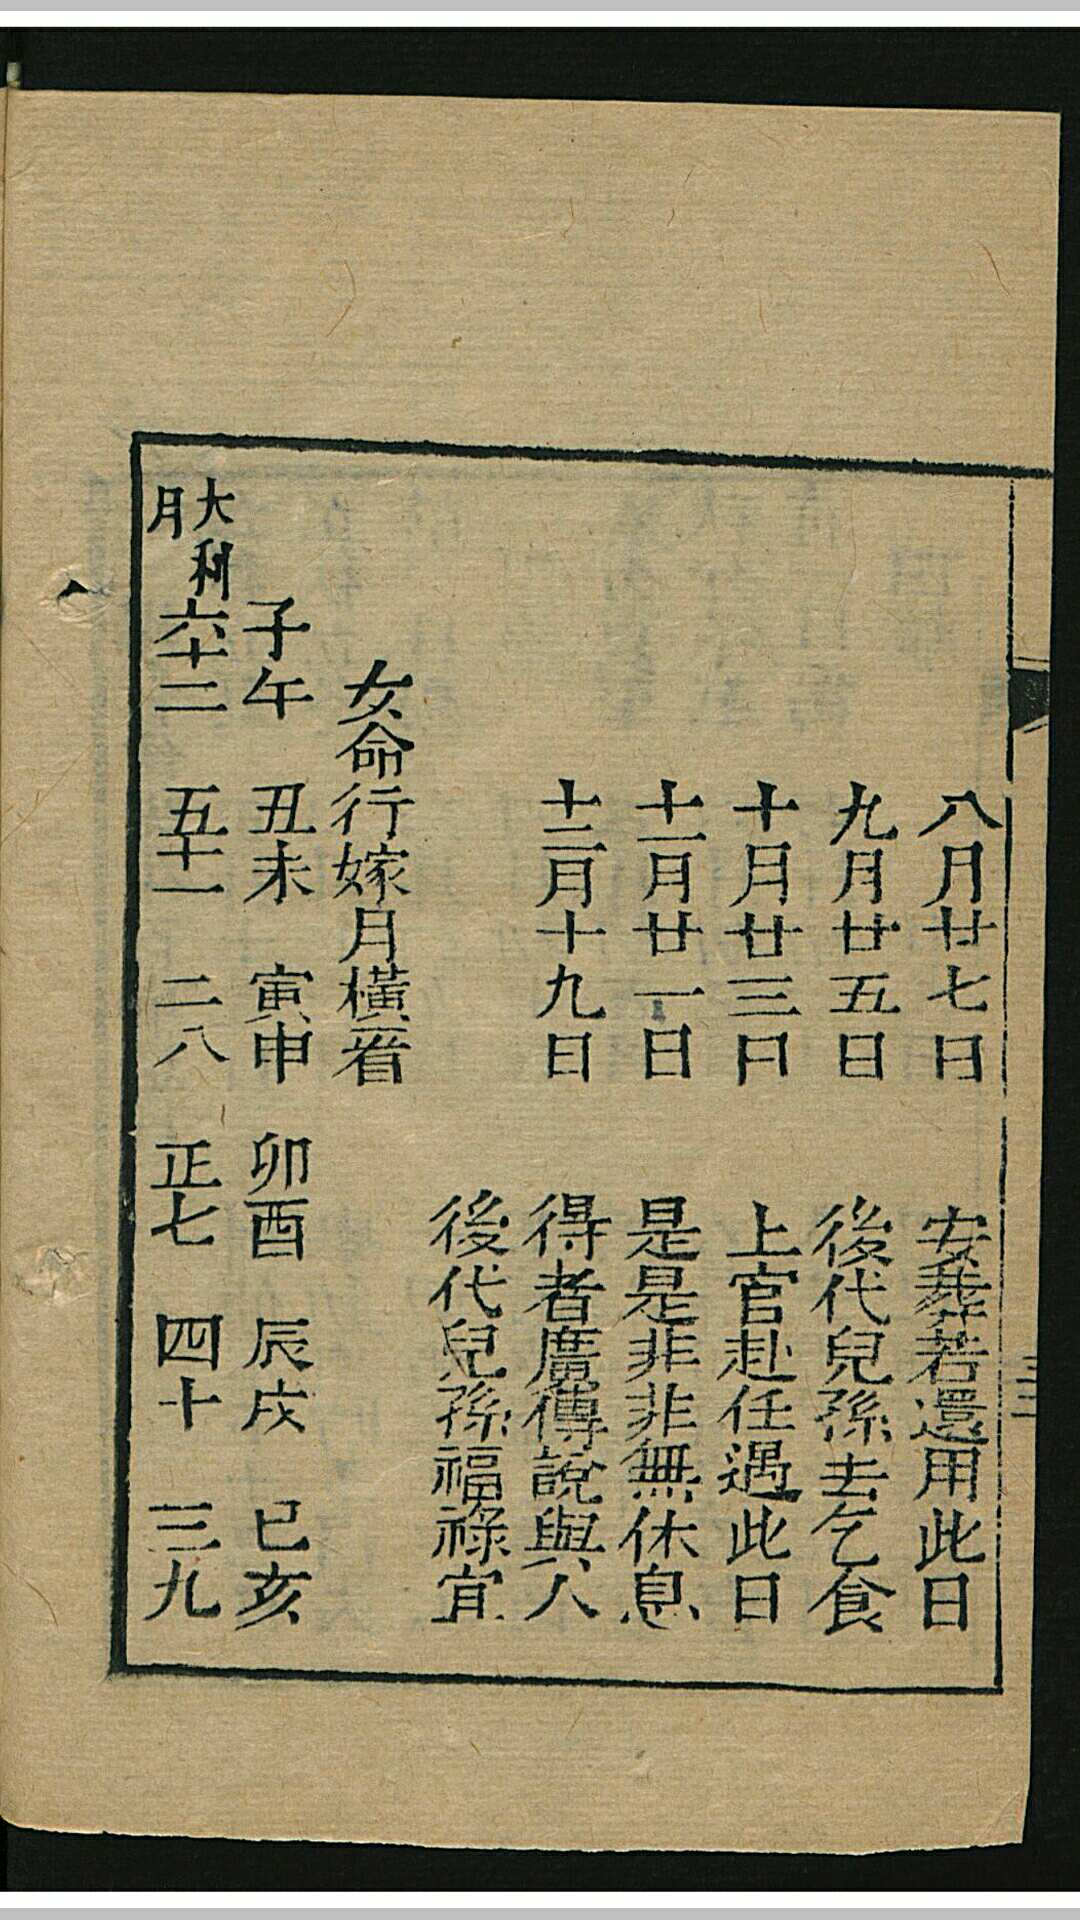 八月廿七日　安葬若還用此日
九月廿五日　後代兒孫去乞食
十月廿三日　上官赴任遇此日
十一月廿一日　是是非非無休息
十二月十九日　得者廣傳說與人
後代兒孫福祿宜
女命行嫁月橫看
子午　丑未　寅申　卯酉　辰戌　巳亥
大利月　六十二　五十一　二八　正七　四十　三九